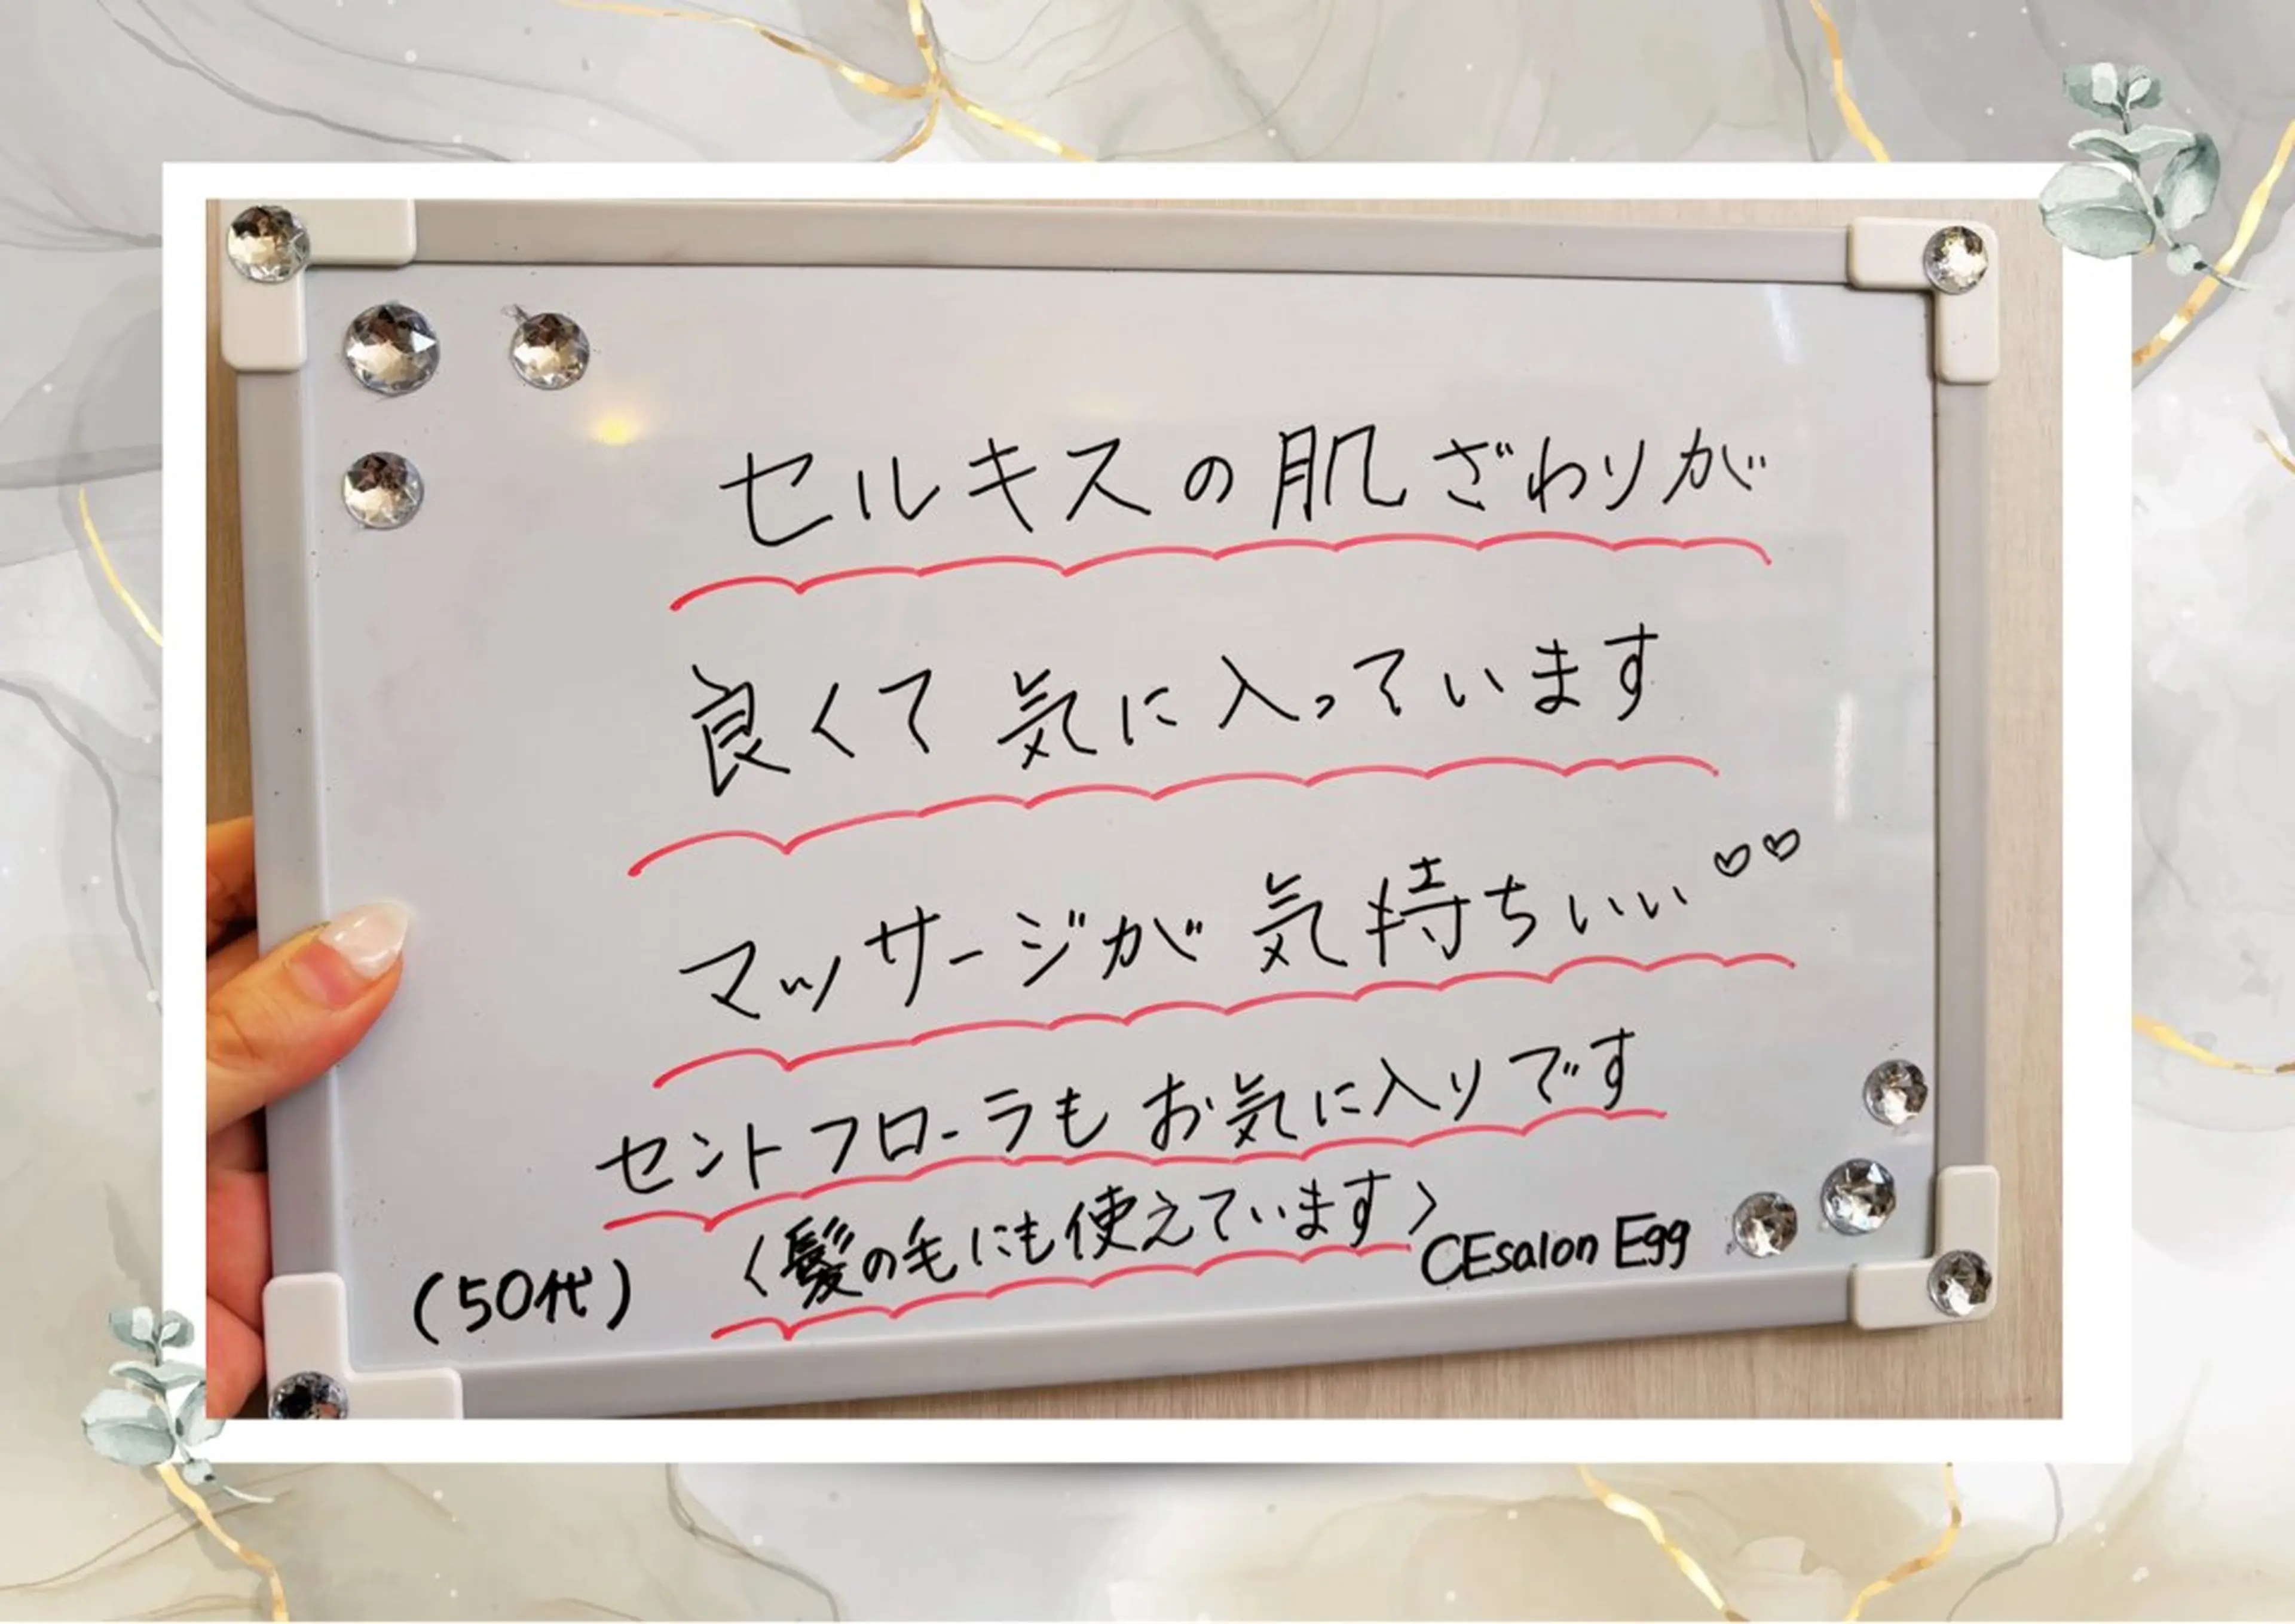 セルキスの肌ざわりが
良くて気に入っています
マッサージが気持ちいい♡♡
セントフローラもお気に入りです
〈髪の毛にも使えています〉
(50代)
CEsalon Egg